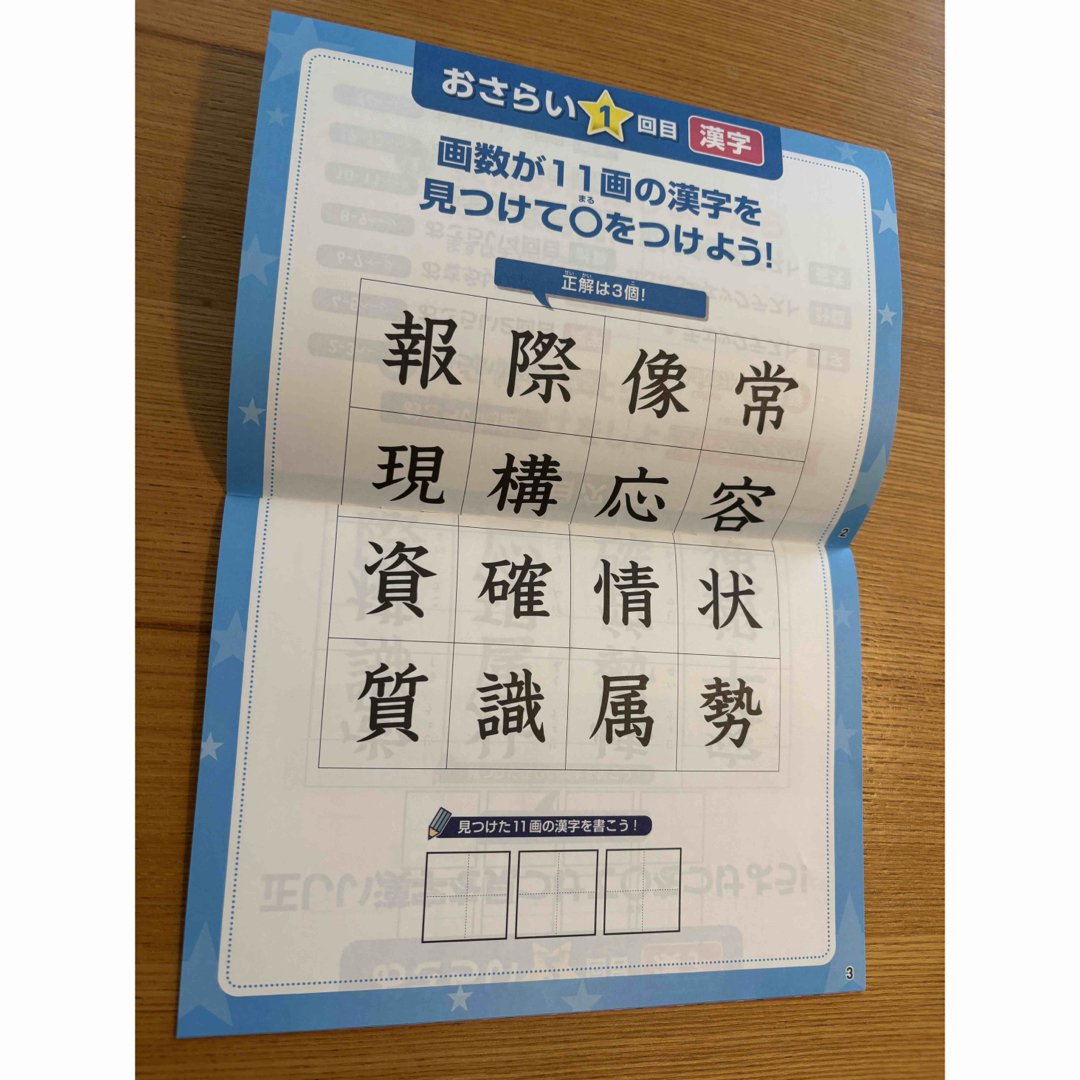 おさらい1回目 漢字
画数が11画の漢字を
見つけて〇をつけよう!
まる
正解は3個!
せい かい こ
報 際 像 常
現 構 応 容
資 確 情 状
質 識 属 勢
見つけた11画の漢字を書こう!
2
3